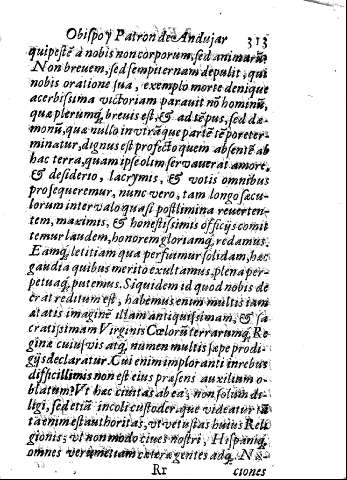 Obispo y Patron de Andujar 313
qui pestẽ à nobis non corporum, sed animarũ,
Non brevem, sed sempiternam depulit, qui
nobis oratione sua, exemplo morte denique
acerbissima victoriam parauit nõ hominũ,
quæ plerumq́, breuis est, & ad tẽpus, sed dæ-
monũ, quæ nullo in vtrãque partẽ tẽpore ter-
minatur, dignus est profecto quem absentẽ ab
hac terra, quam ipse olim servauerat amore,
& desiderio, lacrymis, & votis omnibus
prosequeremur, nunc vero, tam longo sæcu-
lorum intervalo quasi postlimina reuerten-
tem, maximis, & honestissimis officijs comit
temur laudem, honorem gloriamq́, redamus.
Eamq́, letitiam qua perfruimur solidam, hæc
gaudia quibus merito exultamus, plena per-
petuaq́, putemus. Siquidem id quod nobis de
erat reditum est, habemus enim multis iam
ætatis imaginẽ illam antiquissimam, & sa
cratissimam Virginis Cœlorũ terrarumq́, Re
ginæ cuiusvis atq́, numen multis sæpe prodi-
gijs declaratur. Cui enim imploranti in rebus
difficillimis non est eius præsens auxilium o-
blatum? Vt hæc ciuitas ab ea, non solum di-
ligi, sed etiã incoli custoder que videatur tã
ta enim est authoritas, vt vetustas huius Reli
gionis, vt non modo ciues nostri, Hispaniq́,
omnes verum etiam ceteræ gentes adq́, Na-
Rr ciones